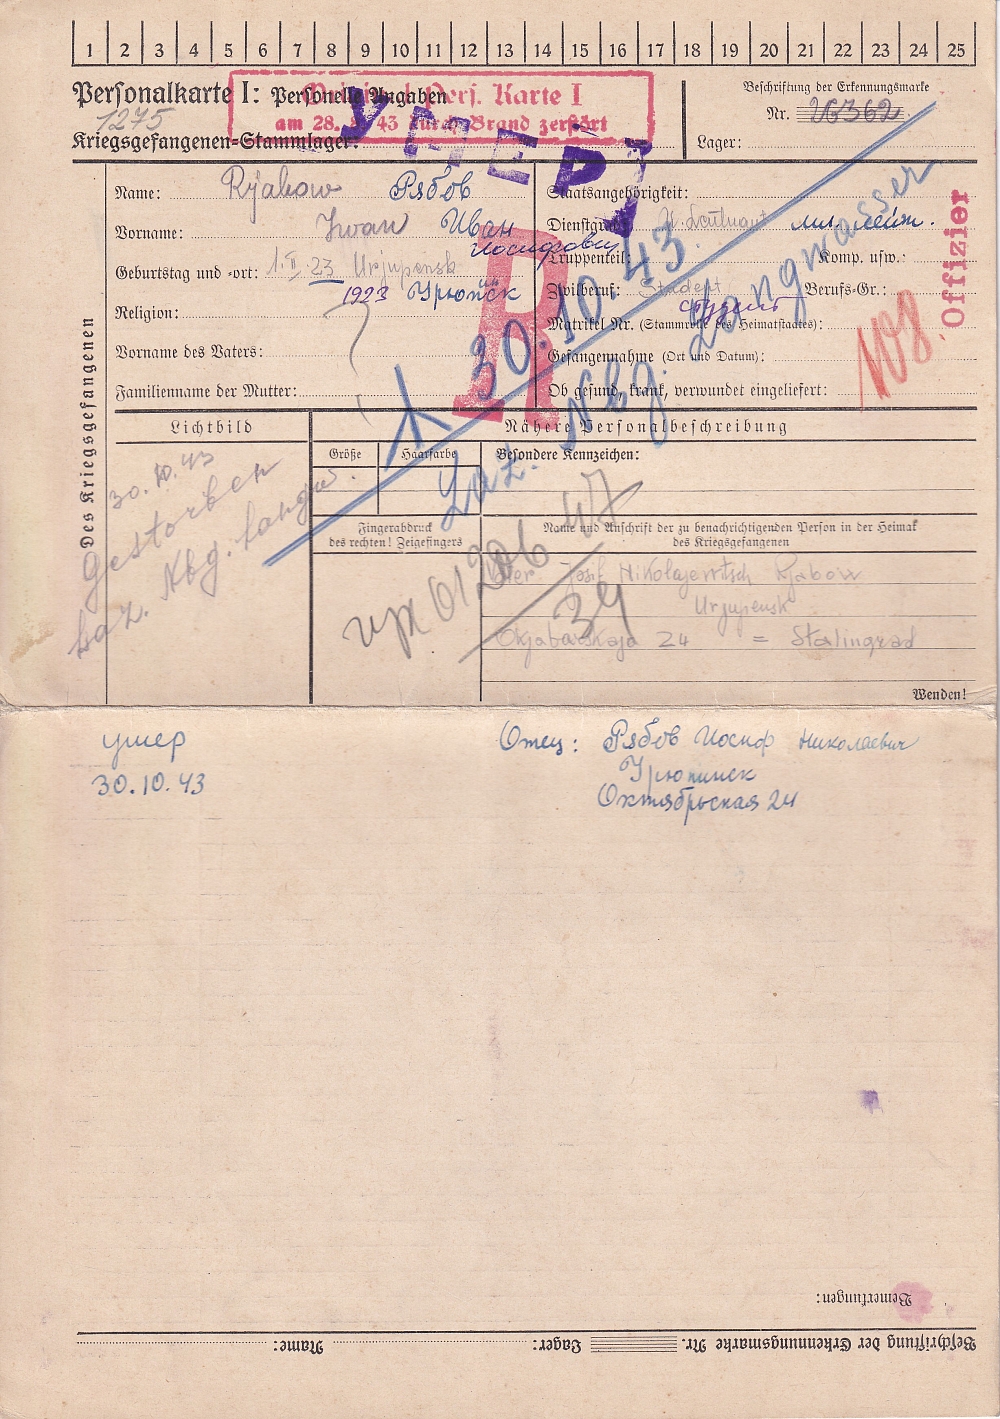 1 2 3 4 5 6 7 8 9 10 11 12 13 14 15 16 17 18 19 20 21 22 23 24 25
Personalkarte I: Personelle Angaben
Pers. Karte I
am 28. 43 durch Brand zerstört
1275
Kriegsgefangenen-Stammlager:
УМЕР
Beschriftung der Erkennungsmarke
Nr.
Lager:
Des Kriegsgefangenen
Name: Rjabow Рябов
Vorname: Iwan Иван
Иосифович
Geburtstag und -ort: 1.II.23 Urjupensk
1923 Урюпинск
Religion:
Vorname des Vaters:
Familienname der Mutter:
Staatsangehörigkeit:
Dienstgrad: Leutnant мл. лейт.
Truppenteil: Komp. usw.:
Zivilberuf: Student Berufs-Gr.:
студент
Matrikel Nr. (Stammrolle des Heimatstaates):
Gefangennahme (Ort und Datum):
Ob gesund, krank, verwundet eingeliefert:
Offizier
R
30.10.43
Laz. Nbg. Langwasser
Lichtbild
30.10.43
Gestorben
Laz. Nbg. Langw.
Nähere Personalbeschreibung
Größe
Haarfarbe
Besondere Kennzeichen:
Fingerabdruck
des rechten! Zeigefingers
Name und Anschrift der zu benachrichtigenden Person in der Heimat
des Kriegsgefangenen
Josif Nikolajewitsch Rjabow
Urjupensk
24 = Stalingrad
34
Wenden!
умер
30.10.43
Отец: Рябов Иосиф Николаевич
Урюпинск
Октябрьская 24
Bemerkungen:
Beschriftung der Erkennungsmarke Nr. Lager: Name: